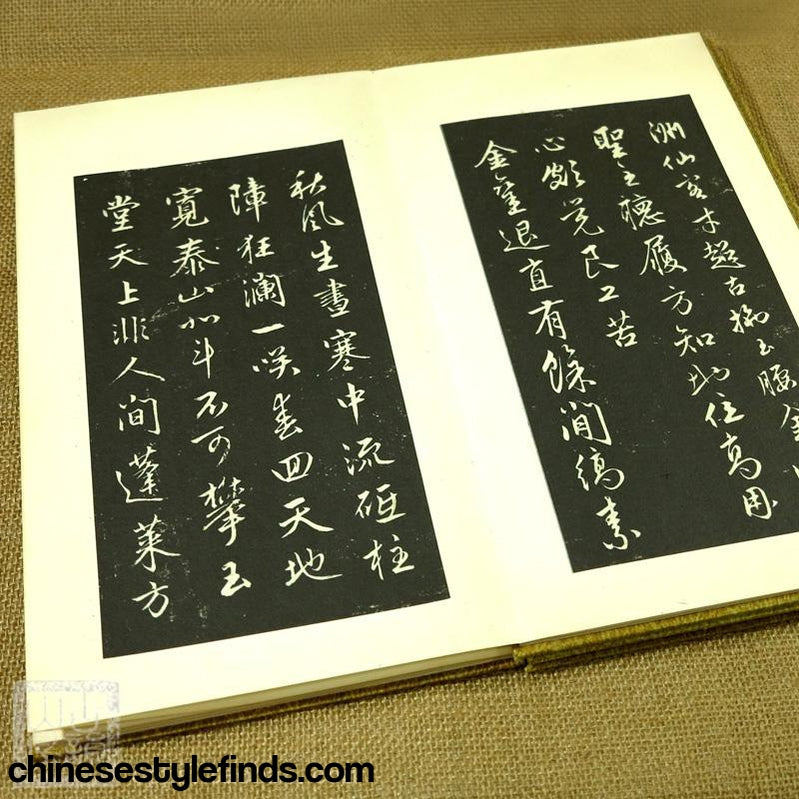 洲仙客才超古玉腰金
聖主聽履方知地位高用
心頗覺良工苦
金鑾退直有餘閒縞素
秋風生畫寒中流砥柱
障狂瀾一咲春回天地
寬泰山北斗不可攀玉
堂天上非人間蓬萊方
chinesestylefinds.com